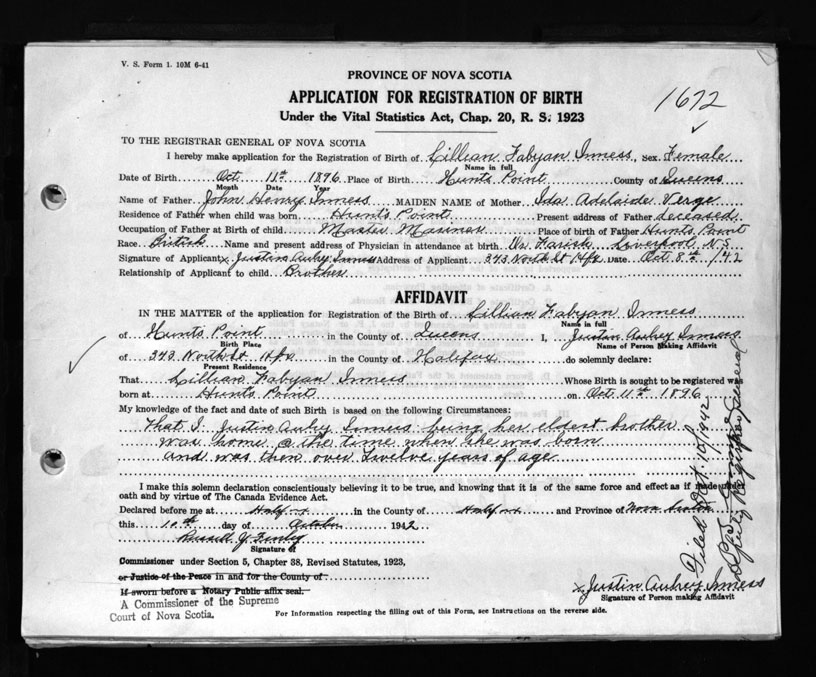 V. S. Form 1. 10M 6-41
PROVINCE OF NOVA SCOTIA
APPLICATION FOR REGISTRATION OF BIRTH
1672
Under the Vital Statistics Act, Chap. 20, R. S. 1923
TO THE REGISTRAR GENERAL OF NOVA SCOTIA
I hereby make application for the Registration of Birth of Lillian Fabyan Inness, Sex Female
Name in full
Date of Birth Oct 11th 1896 Place of Birth Hunts Point County of Queens
Month Date Year
Name of Father John Henry Inness MAIDEN NAME of Mother Ida Adelaide Verge
Residence of Father when child was born Hunt's Point Present address of Father deceased
Occupation of Father at Birth of child Master Mariner Place of birth of Father Hunts Point
Race British Name and present address of Physician in attendance at birth Dr. Farish Liverpool N.S
Signature of Applicant x Justin Aubry Inness Address of Applicant 343 North St Hfx Date Oct 8th /42
Relationship of Applicant to child Brother
AFFIDAVIT
IN THE MATTER of the application for Registration of the Birth of Lillian Fabyan Inness
Name in full
of Hunts Point in the County of Queens I, Justin Aubrey Inness
Birth Place Name of Person Making Affidavit
of 343 North St Hfx in the County of Halifax do solemnly declare:
Present Residence
That Lillian Fabyan Inness Whose Birth is sought to be registered was
born at Hunts Point on Oct 11th 1896
My knowledge of the fact and date of such Birth is based on the following Circumstances:
That I Justin Aubry Inness being her eldest brother
was home @ the time when she was born
and was then over twelve years of age
I make this solemn declaration conscientiously believing it to be true, and knowing that it is of the same force and effect as if made under
oath and by virtue of The Canada Evidence Act.
Declared before me at Halifax in the County of Halifax and Province of Nova Scotia
this 10th day of October 1942
Russell Y. Finley
Signature of
Commissioner under Section 5, Chapter 38, Revised Statutes, 1923,
or Justice of the Peace in and for the County of
If sworn before a Notary Public affix seal.
A Commissioner of the Supreme
Court of Nova Scotia.
x Justin Aubrey Inness
Signature of Person making Affidavit
For Information respecting the filling out of this Form, see Instructions on the reverse side.
Filed Oct. 10/1942
Deputy Registrar General